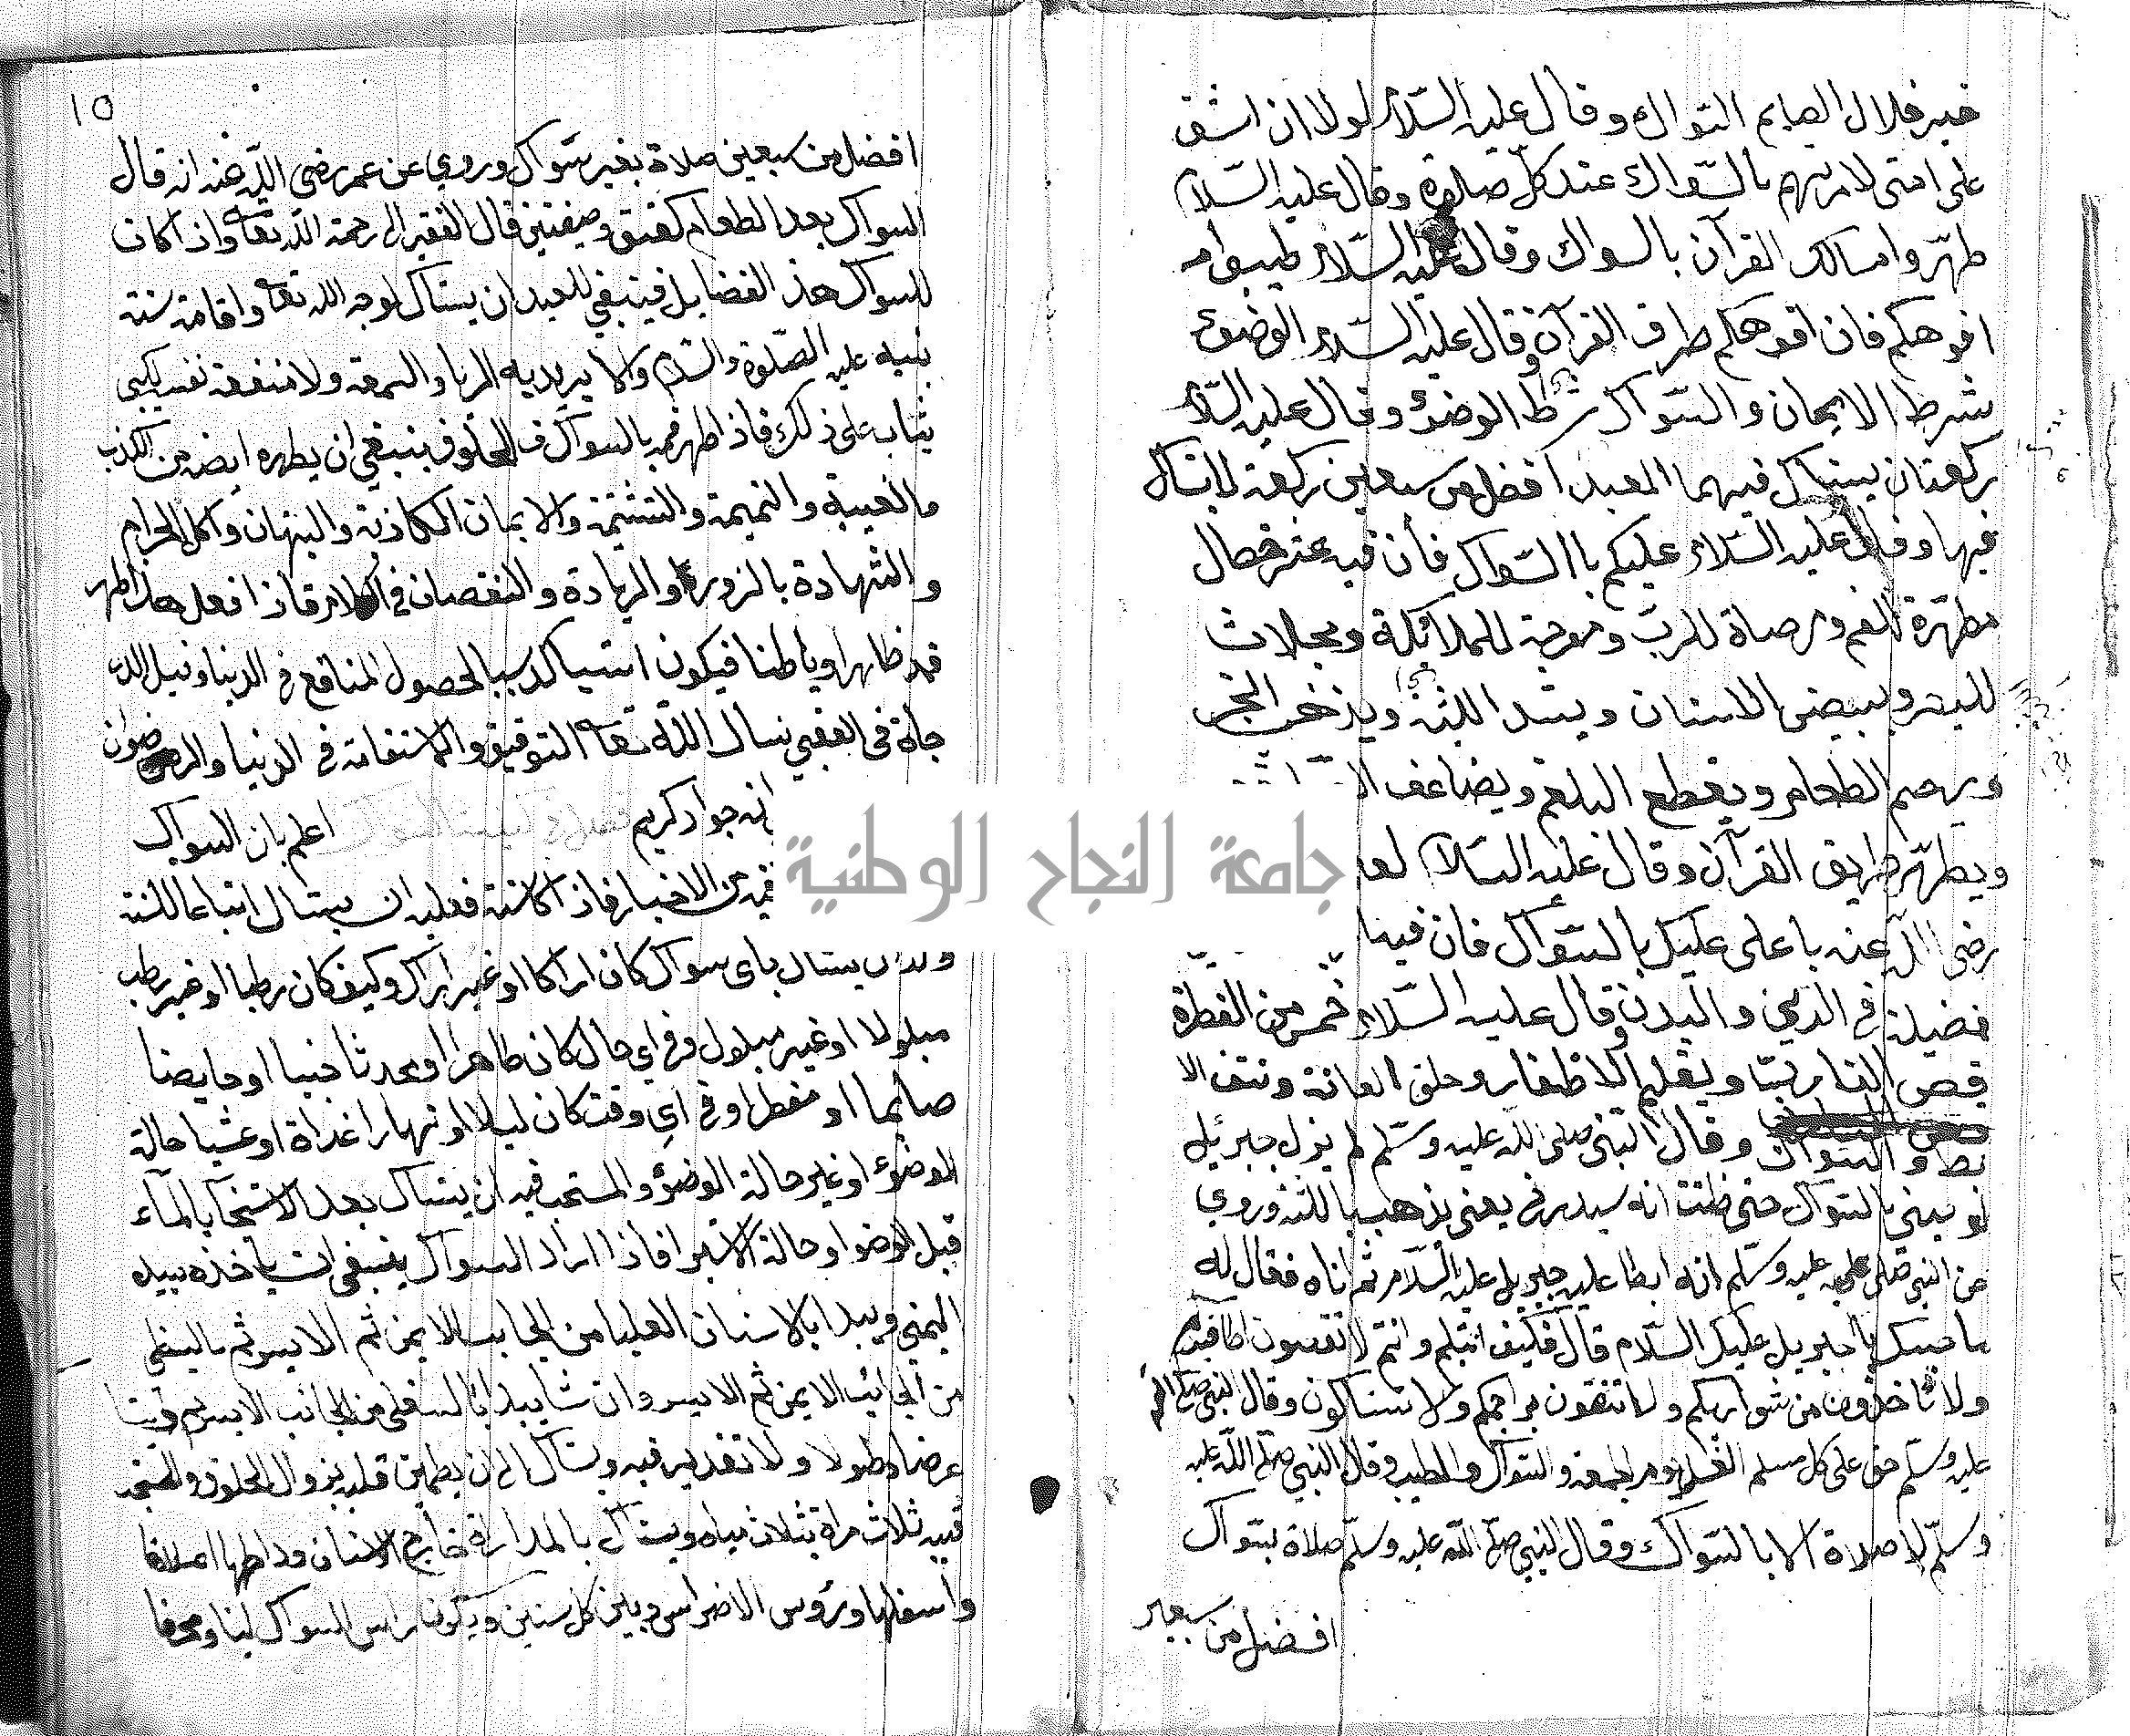 خير خلال الصايم السواك وقال عليه السلام لولا ان اشق
على امتي لامرتهم بالسواك عند كل صلوة وقال عليه السلام
طهروا مسالك القرآن بالسواك وقال عليه السلام طيبوا
افوهكم فان افوهكم طرق القرآن وقال عليه السلام الوضوء
شرط الايمان والسواك شرط الوضوء وقال عليه السلام
ركعتان يستاك فيهما العبد افضل من سبعين ركعة لا يستاك
فيها وقال عليه السلام عليكم باالسواك فأن فيه عشر خصال
مطهرة للفم ومرضاة للرب ومفرحة للملائكة ومجلات
للبصر ويبيض الاسنان ويشد اللثة ويذهب
ويهضم الطعام ويقطع البلغم ويضاعف الا
ويطهر طريق القرآن وقال عليه السلام
رضى الله عنه يا على عليك بالسواك فان فيه
فضيلة في الدين والبدن وقال عليه السلام خمس من الفطرة
قص الشارب وتقليم الاظفار وحلق العانة ونتف الا
بط والسواك وقال النبى صلى الله عليه وسلم لم يزل جبرئيل
يوصيني بالسواك حتى ظننت انه سيدردني يعنى يذهب باللثة وروي
عن النبي صلى عليه وسلم انه ابطا عليه جبريل عليه السلام ثم اتاه فقال له
ما حبسك يا جبريل عليك السلام قال فكيف اتيكم وانتم لا تقصون اظافيركم
ولا تاخذون من شواربكم ولا تنقون براجمكم ولا تستاكون وقال النبي صلى الله
عليه وسلم حق على كل مسلم الغسل يوم الجمعة والسواك والطيب وقال النبي صلى الله عليه
وسلم لا صلاة الا بالسواك وقال النبي صلى الله عليه وسلم صلاة بسواك
افضل من سبعين
١٥
افضل من سبعين صلاة بغير سواك وروي عن عمر رضى الله عنه انه قال
السواك بعد الطعام كعتق وصيفتين قال الفقير الى رحمة الله تعا واذا كان
للسواك هذه الفضايل فينبغي للعبد ان يستاك لوجه الله تعا واقامة سنة
نبيه عليه الصلوة والسلام والا يريد به الريا والسمعة ولا منفعة نفسه لكي
يثاب على ذلك فاذا طهر فمه بالسواك من الخلوف ينبغي ان يطهره ايضه من الكذب
والغيبة والنميمة والشتيمة والايمان الكاذبة والبهتان واكل الحرام
والشهادة بالزور والزيادة والنقصان في الكلام فاذا فعل هذا طهر
فمه ظاهرا وباطنا فيكون استياكه سببا لحصول المنافع في الدنيا ونيل الدر
جاة في العقبي نسال الله تعا التوفيق والاستقامة في الدنيا والرضوان
انه جواد كريم فصل في كيفية السواك اعلم بان السواك
فيه من الاخبار فاذا كانسنة فعليه ان يستاك اتباعا للسنة
وله ان يستاك باى سواك كان اراكا او غير اراك وكيف كان رطبا او غير رطب
مبلولا او غير مبلول وفي اي حال كان طاهرا او محدثا جنبا او حايضا
صايما او مفطرا وفي اي وقت كان ليلا او نهارا غداة او عشيا حالة
الوضوء او غير حالة الوضوء والمستحب فيه ان يستاك بعد الاستنجآ بالمآء
قبل الوضو او حالة الاستبرا فاذا اراد السواك ينبغى ان ياخذه بيده
اليمنى ويبدا بالاسنان العليا من الجانب الايمن ثم الايسر ثم بالسفلى
من الجانب الايمن ثم الايسر وان شا يبدا بالسفلى من الجانب الايسر
عرضا وطولا ولا تقدير فيه ويستاك الى ان يطمئن قلبه بزوال الخلوف
فيه ثلاث مراة بثلاث مياه ويستاك بالمداراة خارج الاسنان وداخلها اعلاها
واسفلها ورؤس الاضراس وبين كل سنين ويكون راس السواك لينا
جامعة النجاح الوطنية